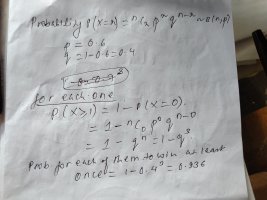 Probability P(X=x) = ⁿCₓ pˣ qⁿ⁻ˣ ~ B(n,p)
p = 0.6
q = 1-0.6 = 0.4
for each one
P(X≥1) = 1 - P(X=0)
= 1 - ⁿC₀ p⁰ qⁿ⁻⁰
= 1 - qⁿ = 1 - q³
Prob. for each of them to win at least
once = 1 - 0.4³ = 0.936